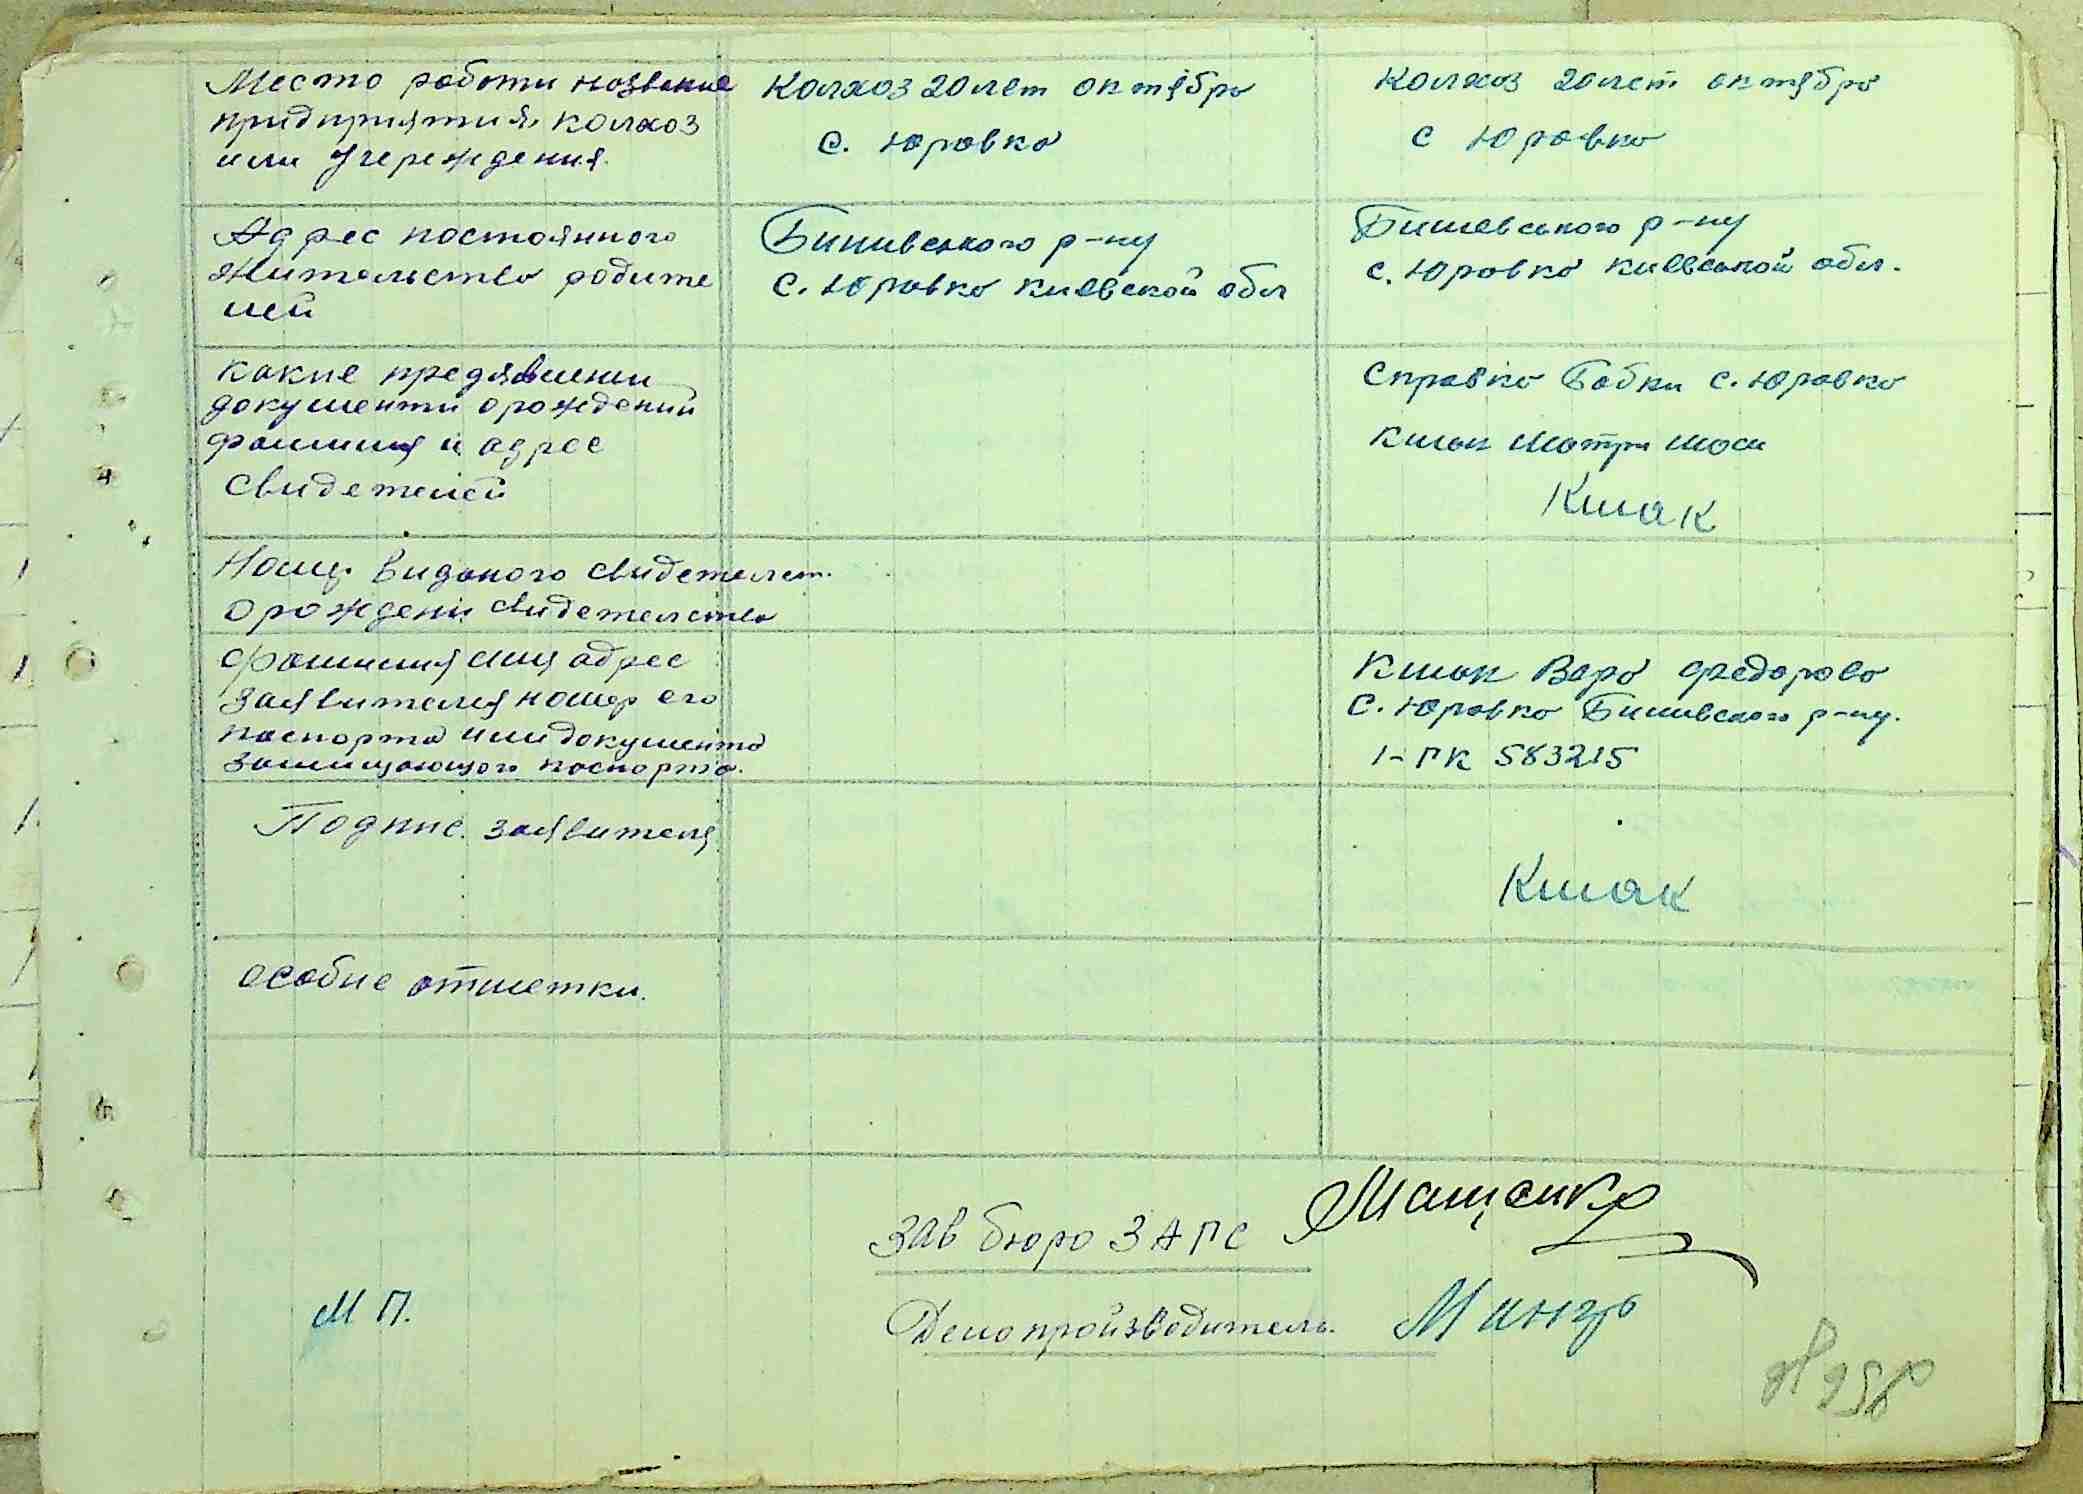 Место работи название
придприятия, колхоз
или Учереждения.
Колхоз 20 лет октября
с. Юровка
Колхоз 20 лет октября
с Юровка
Адрес постоянного
жительства родите
лей
Бишивського р-ну
с. Юровка киевской обл
Бишевського р-ну
с. Юровка киевськой обл.
какие предявлени
документи орождений
фамилия и адрес
свидетелей
Справка Бабки с. Юровка
Кшак Мотри
Кшак
Номер виданого свидетелст.
орождени свидетелства
фамилия имя адрес
заявителия номер его
паспорта или документа
замищающого паспорта.
Кшак Вара федорова
с. Юровка Бишивского р-ну.
1-ГК 583215
Подпис. заявителя
Кшак
особие отметки.
Зав бюро ЗАГС Мащенко
М П.
Делопроизводитель.